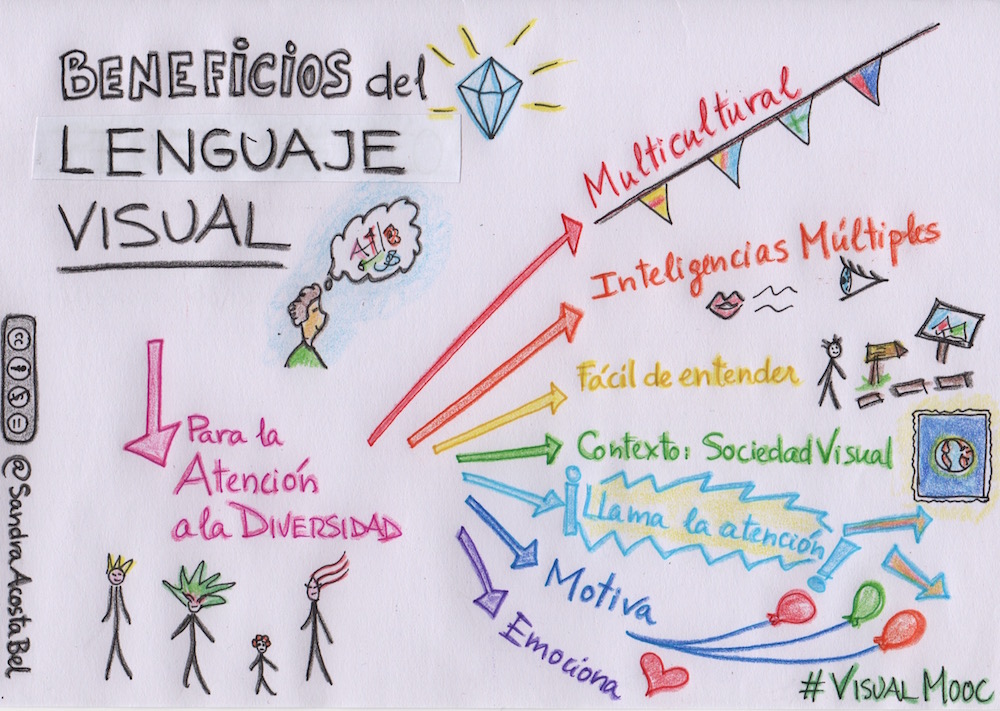 BENEFICIOS del
LENGUAJE
VISUAL
Para la
Atención
a la DIVERSIDAD
Multicultural
Inteligencias Múltiples
Fácil de entender
Contexto: Sociedad Visual
¡Llama la atención!
Motiva
Emociona
#VISUALMOOC
@SandraAcostaBel